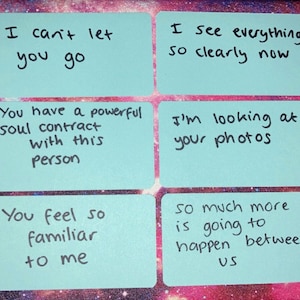 I can't let
you go
I see everything
so clearly now
You have a powerful
soul contract
with this
person
I'm looking at
your photos
You feel so
familiar
to me
so much more
is going to
happen between
us